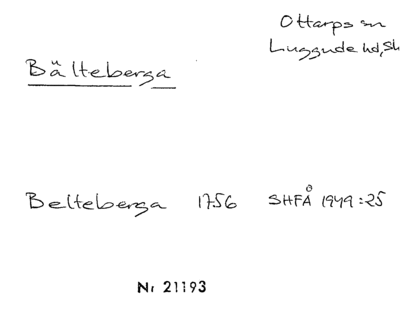 Ottarps sn
Luggude hd, Sk
Bälteberga
Belteberga 1756 SHFÅ 1949:25
Nr 21193